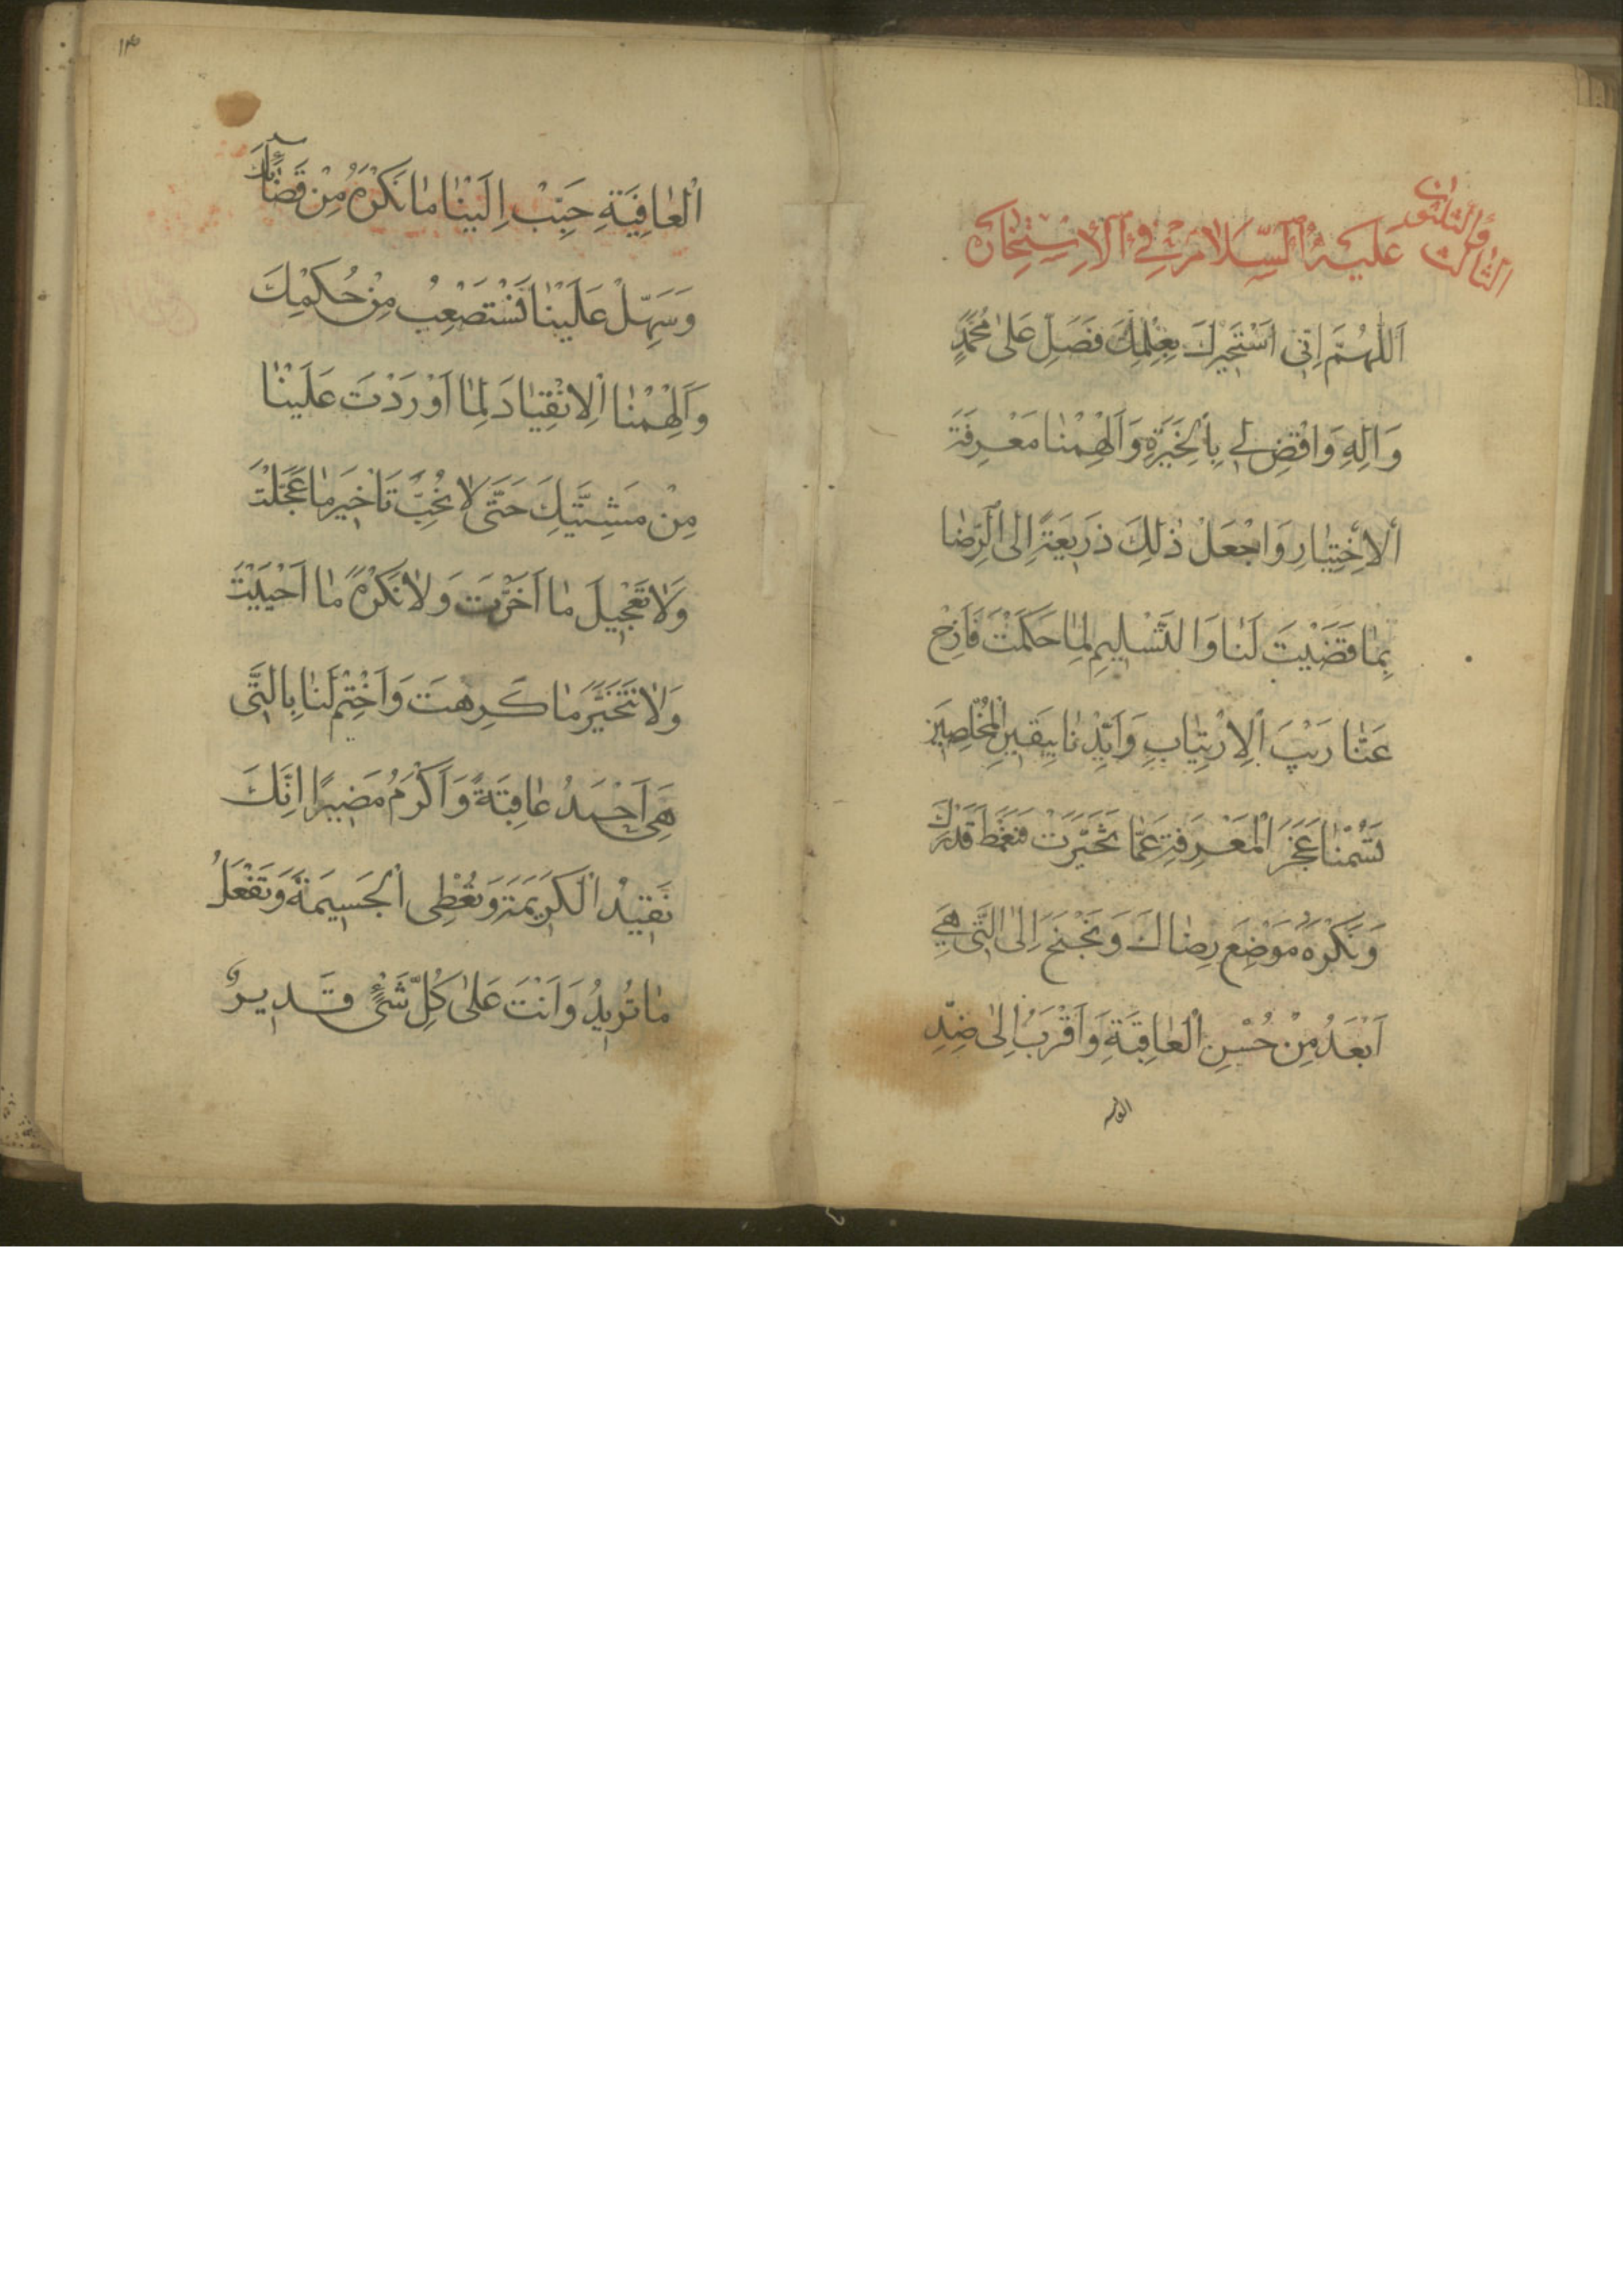 الثالث والثلثون
عَلَيْهِ السَّلَامُ فِي الْاِسْتِخَارَه
اَللّٰهُمَّ اِنّى اَسْتَخيرُكَ بِعِلْمِكَ فَصَلِّ عَلىٰ مُحَمَّدٍ
وَالِهِ وَاقْضِ لِي بِالْخِيَرَةِ وَاَلْهِمْنٰا مَعْرِفَةَ
الْاِخْتِيٰارِ وَاجْعَلْ ذٰلِكَ ذَرِيعَةً اِلَى الرِّضٰا
بِمٰا قَضَيْتَ لَنٰا وَالتَّسْليمِ لِمٰا حَكَمْتَ فَاَزِحْ
عَنّٰا رَيْبَ الْاِرْتِيٰابِ وَاَيِّدْنٰا بِيَقينِ الْمُخْلِصينَ
تَسُمْنٰا عَجْزَ الْمَعْرِفَةِ عَمّٰا تَخَيَّرْتَ فَنَغْمِطَ قَدْرَكَ
وَنَكْرَهَ مَوْضِعَ رِضٰاكَ وَنَجْنَحَ اِلىَ الَّتى هِيَ
اَبْعَدُ مِنْ حُسْنِ الْعٰاقِبَةِ وَاَقْرَبُ اِلىٰ ضِدِّ
الْعٰافِيَةِ حَبِّبْ اِلَيْنٰا مٰا نَكْرَهُ مِنْ قَضٰائِكَ
وَسَهِّلْ عَلَيْنٰا نَسْتَصْعِبُ مِنْ حُكْمِكَ
وَاَلْهِمْنٰا الْاِنْقِيٰادَ لِمٰا اَوْرَدْتَ عَلَيْنٰا
مِنْ مَشِيَّتِكَ حَتّٰى لٰا نُحِبَّ تَاْخيرَ مٰا عَجَّلْتَ
وَلٰا تَعْجيلَ مٰا اَخَّرْتَ وَلٰا نَكْرَهَ مٰا اَحْبَبْتَ
وَلٰا نَتَخَيَّرَ مٰا كَرِهْتَ وَاخْتِمْ لَنٰا بِالَّتى
هِىَ اَحْمَدُ عٰاقِبَةً وَاَكْرَمُ مَصيرًا اِنَّكَ
تُفيدُ الْكَريمَةَ وَتُعْطِى الْجَسيمَةَ وَتَفْعَلُ
مٰا تُريدُ وَاَنْتَ عَلىٰ كُلِّ شَىْءٍ قَديرٌ